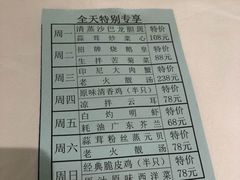 全天特别专享
周一
清蒸沙巴龙胆斑
蒜茸炒菜心
特价
108元
周二
招牌烧鹅皇
生拌苦菊菜
特价
88元
周三
印尼大肉蟹
老火靓汤
特价
238元
周四
原味清香鸡（半只）
凉拌云耳
特价
78元
周五
白灼明虾
耗油广东芥兰
特价
68元
周六
蒜茸粉丝蒸元贝
老火靓汤
特价
78元
周日
经典脆皮鸡（半只）
原味西洋菜
特价
78元